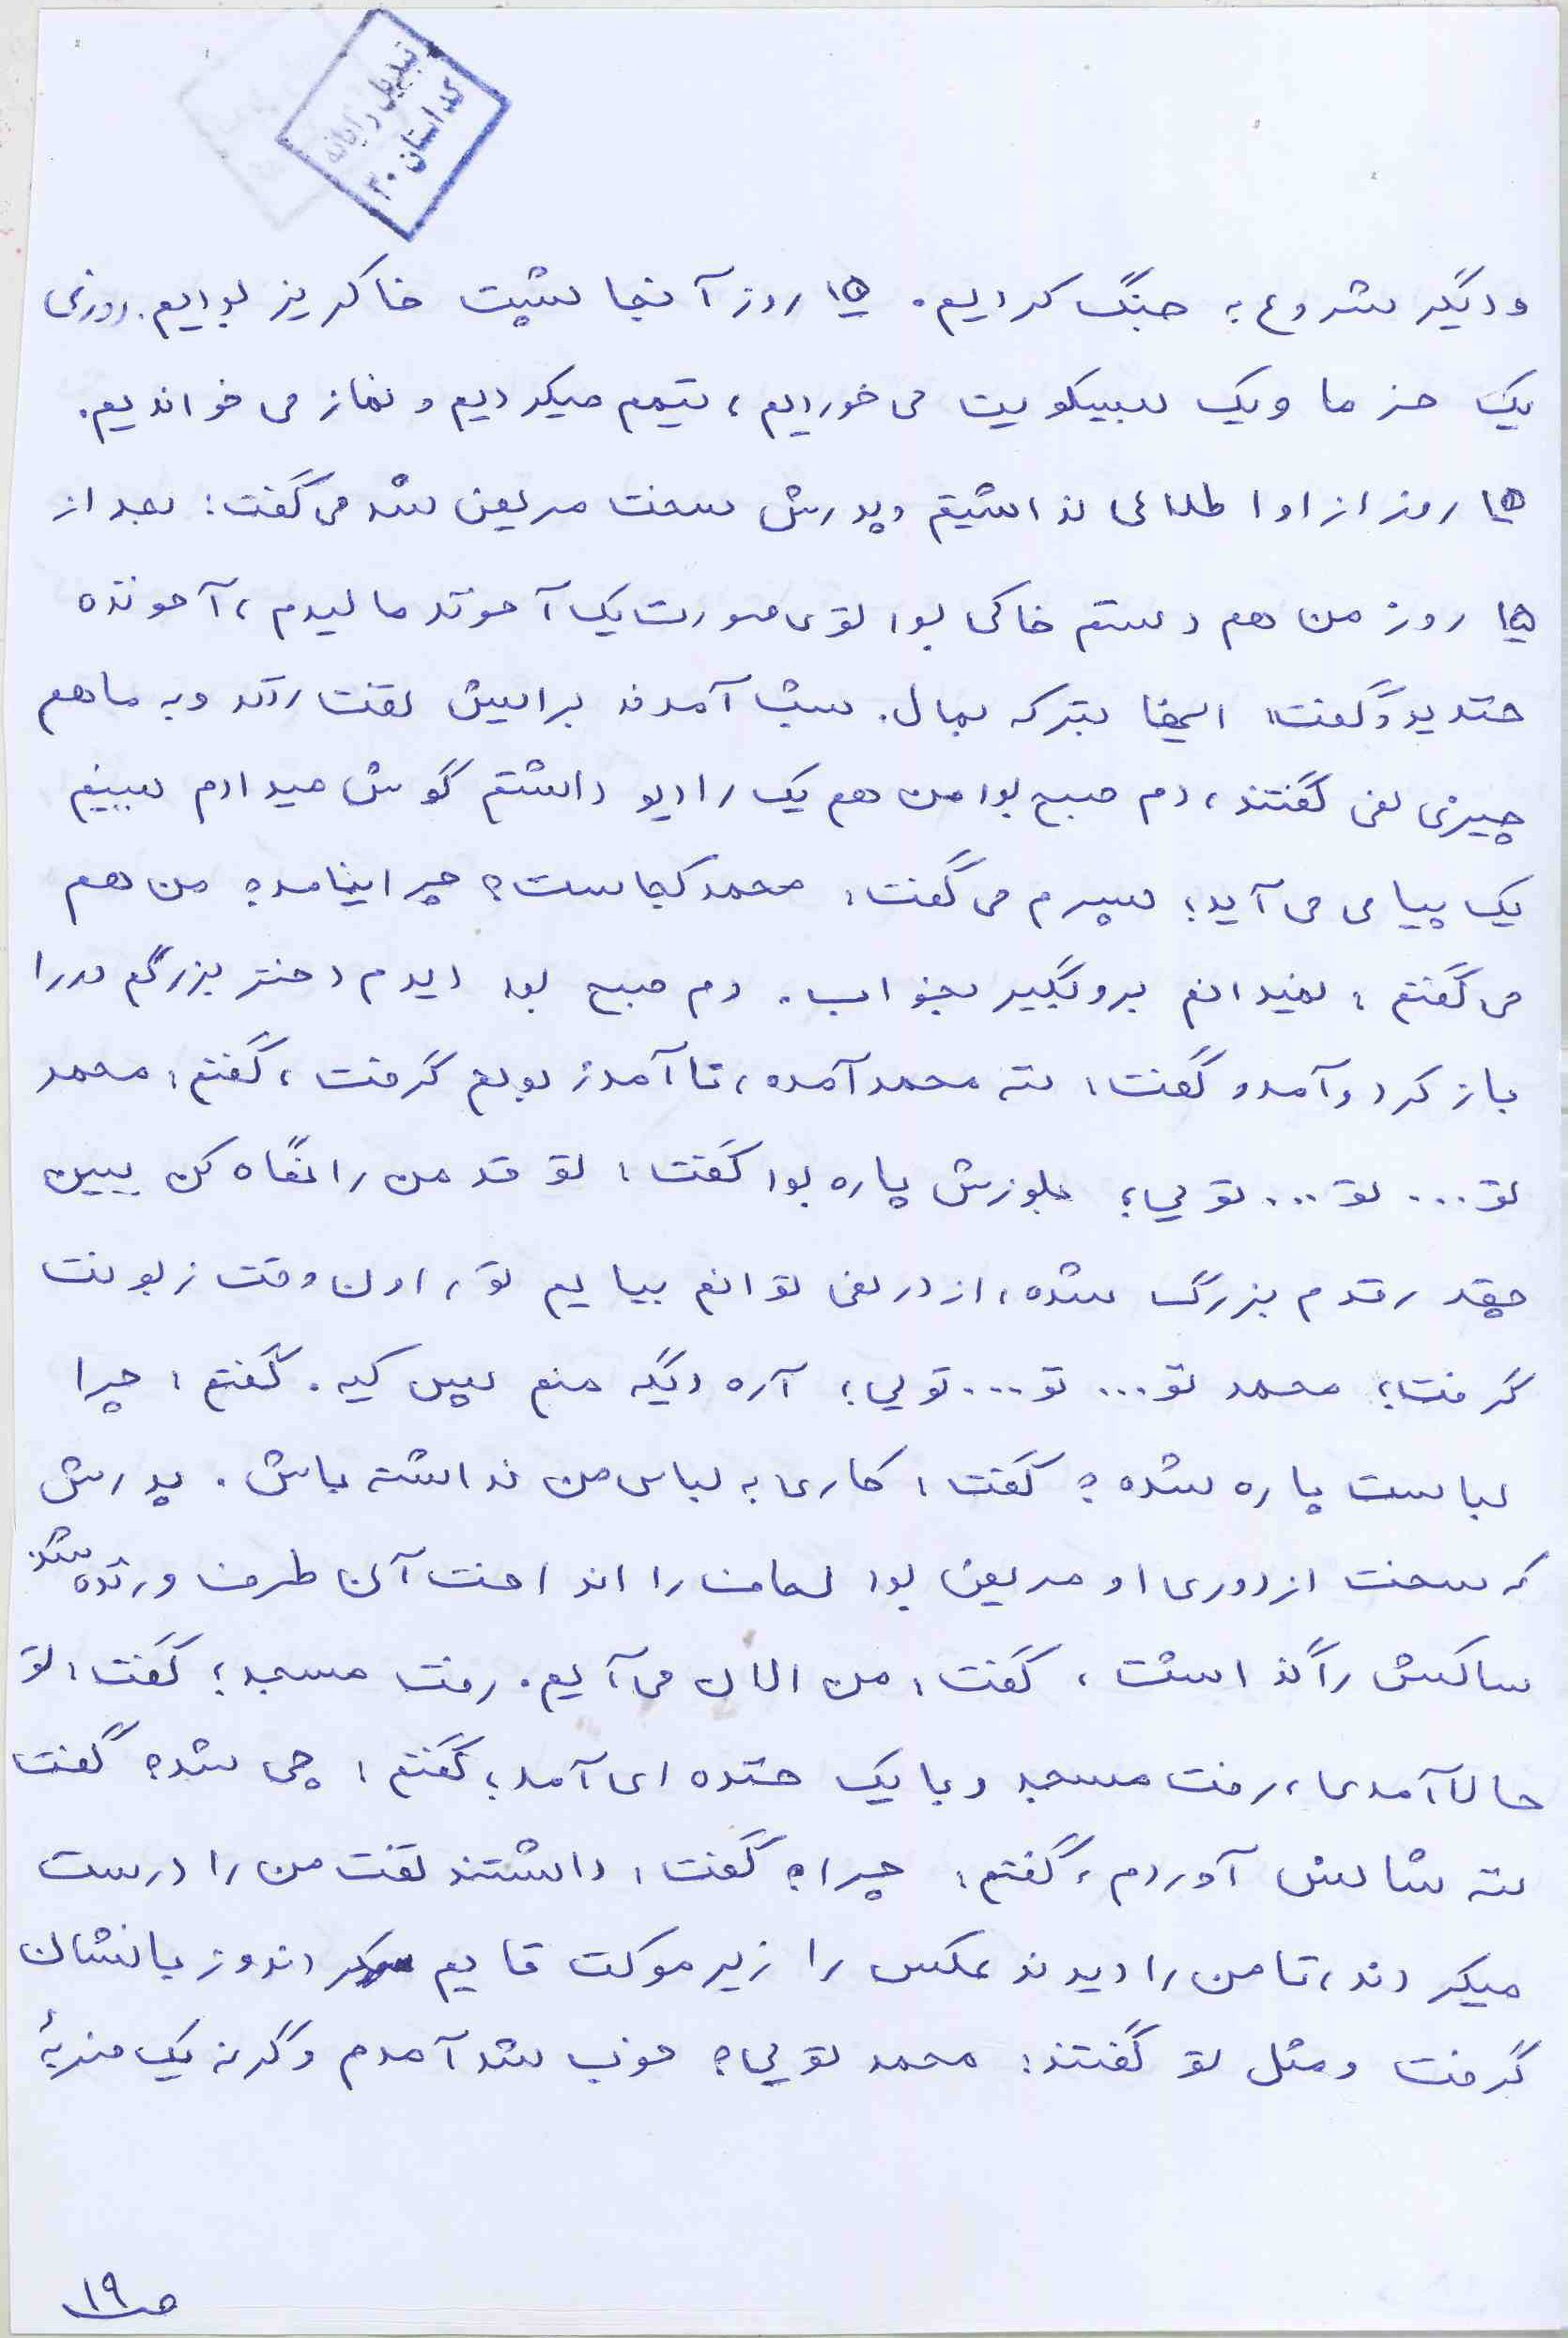 تبدیل رایانه
کد استان ۳۰
و دیگر شروع به جنگ کردیم. ۱۵ روز آنجا پشت خاکریز بودیم. روزی
یک خرما و یک بیسکویت می خوردیم، تیمم میکردیم و نماز می خواندیم.
۱۵ روز از او اطلاعی نداشتیم و پدرش سخت مریض شد می گفت: بعد از
۱۵ روز من هم دستم خاکی بود توی صورت یک آخوند مالیدم، آخونده
خندید و گفت: اینجا تبرکه بمال. شب آمدند برایش تخت زدند و به ما هم
چیزی نمی گفتند، دم صبح بود من هم یک رادیو داشتم گوش میدادم ببینم
یک پیامی می آید؛ پسرم می گفت: محمد کجاست؟ چرا نیامده؟ من هم
می گفتم: نمیدانم برو بگیر بخواب. دم صبح بود دیدم دختر بزرگم در را
باز کرد و آمد و گفت: ننه محمد آمده، تا آمد زبونم گرفت، گفتم: محمد
تو... تو... تویی؟ بلوزش پاره بود گفت: تو قد من را نگاه کن ببین
چقدر قدم بزرگ شده، از در نمی توانم بیایم تو، اون وقت زبونت
گرفت؟ محمد تو... تو... تویی؟ آره دیگه منم پس کیه. گفتم: چرا
لباست پاره شده؟ گفت: کاری به لباس من نداشته باش. پدرش
که سخت از دوری او مریض بود لحاف را انداخت آن طرف و زنده شد.
ساکش را گذاشت، گفت: من الان می آیم. رفت مسجد؛ گفت: تو
حالا آمدی، رفت مسجد و با یک خنده ای آمد؛ گفتم: چی شده؟ گفت
ننه شانس آوردم، گفتم: چرا؟ گفت: داشتند تخت من را درست
میکردند، تا من را دیدند عکس را زیر موکت قایم کردند و زبانشان
گرفت و مثل تو گفتند: محمد تویی؟ خوب شد آمدم وگرنه یک ضربهٔ
ص۱۹